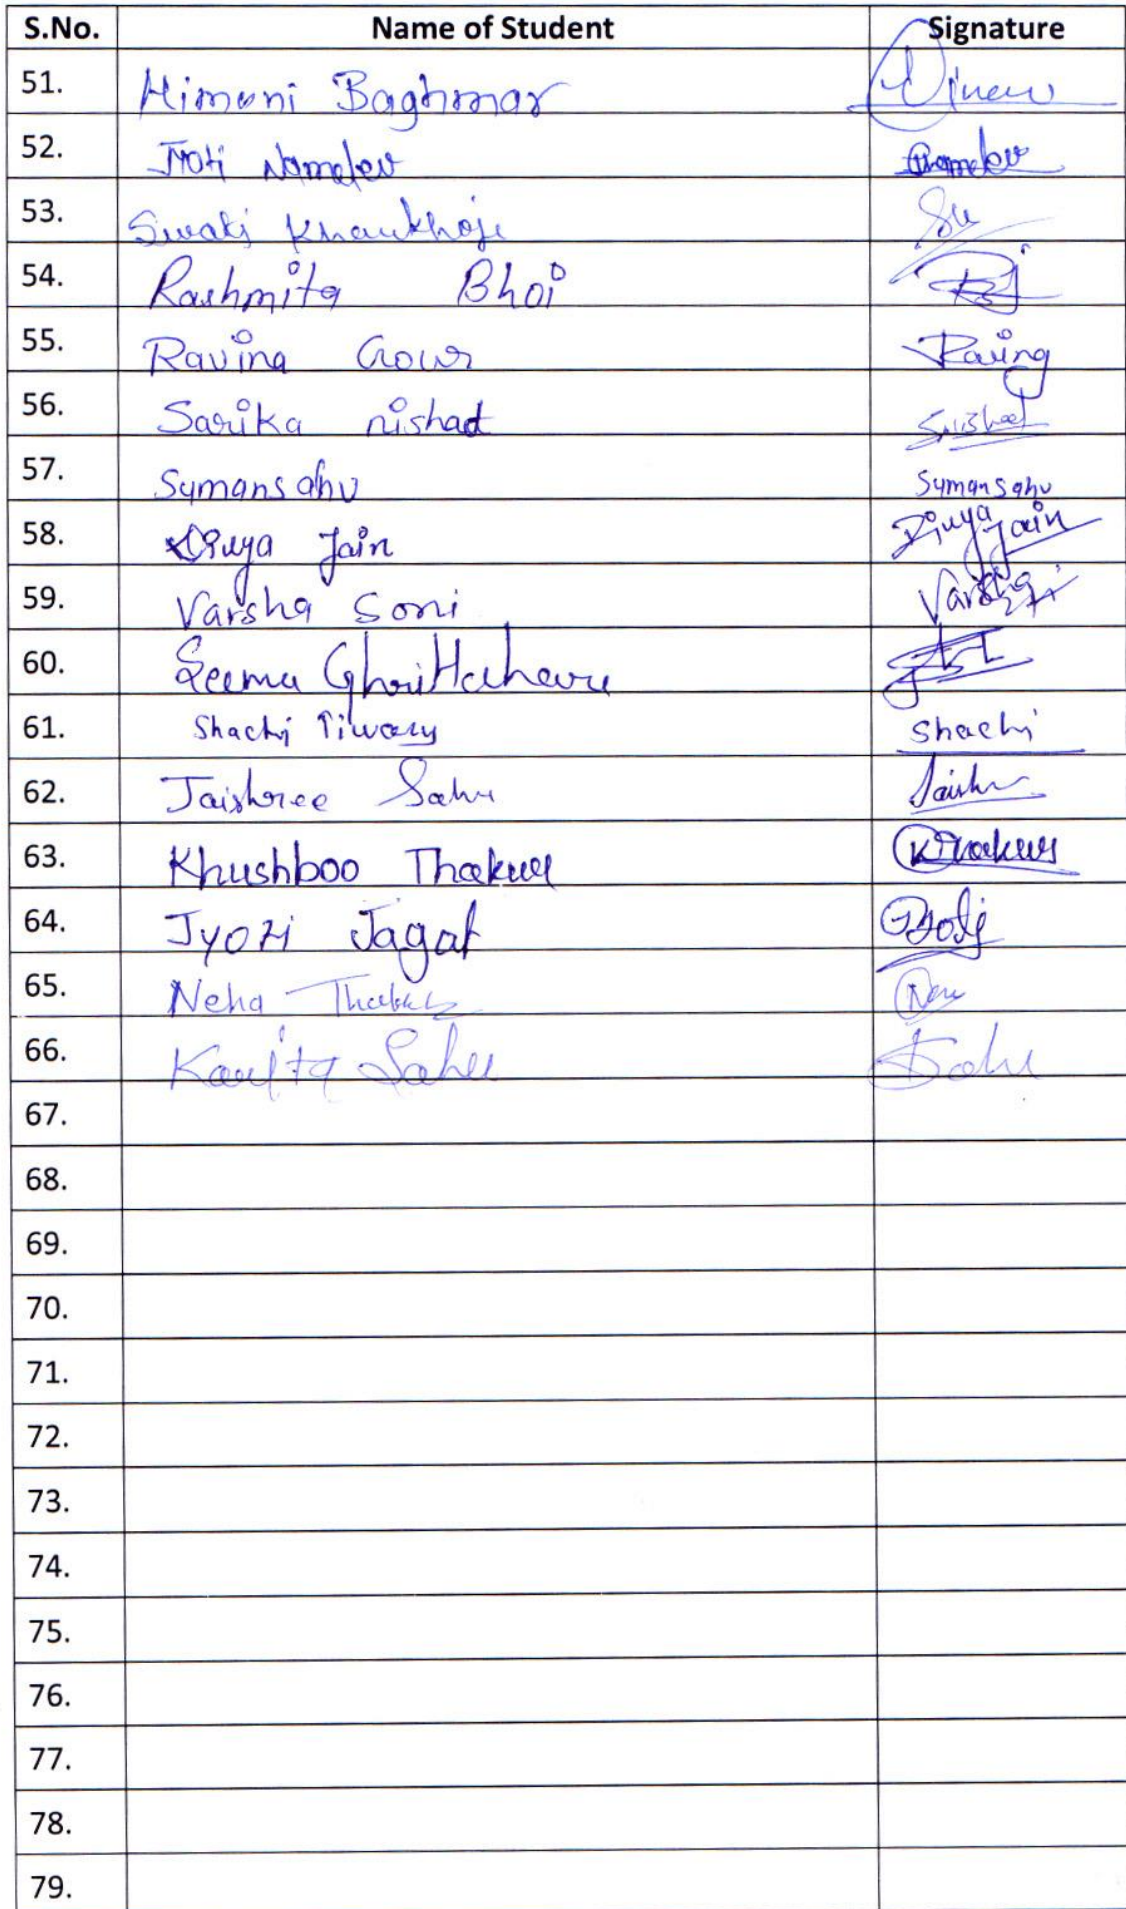 S.No. Name of Student Signature
51. Himani Baghmar
52. Jyoti Namdev Namdev
53. Swati Khankhoje
54. Rashmita Bhoi
55. Ravina Gour Ravina
56. Sarika nishad
57. Suman sahu Suman sahu
58. Divya Jain Divya Jain
59. Varsha Soni Varsha
60. Seema
61. Shachi Tiwary Shachi
62. Jaishree Sahu Jaish
63. Khushboo Thakur KThakur
64. Jyoti Jagat Jyoti
65. Neha
66. Kavita Sahu Sahu
67.
68.
69.
70.
71.
72.
73.
74.
75.
76.
77.
78.
79.